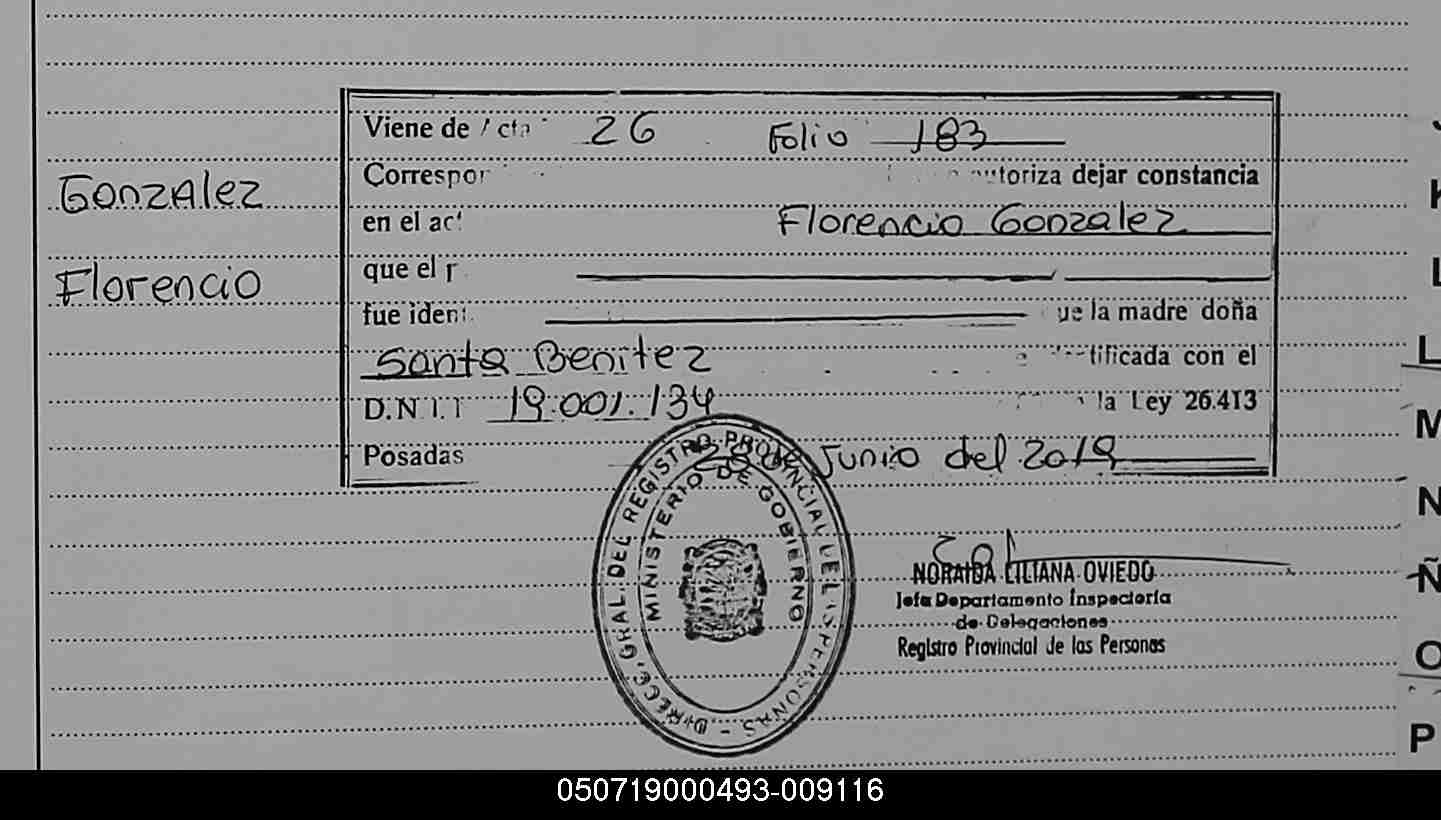 Viene de Acta 26 Folio 183
Correspon autoriza dejar constancia
Gonzalez
en el act Florencio Gonzalez
que el p
Florencio
fue ident que la madre doña
Santa Benitez tificada con el
D.N.I. 19.001.134 la Ley 26.413
Posadas Junio del 2019
DIRECC. GRAL. DEL REGISTRO PROVINCIAL DE LAS PERSONAS
MINISTERIO DE GOBIERNO
NORAIDA LILIANA OVIEDO
Jefa Departamento Inspectoría
de Delegaciones
Registro Provincial de las Personas
K
L
LL
M
N
Ñ
O
P
050719000493-009116